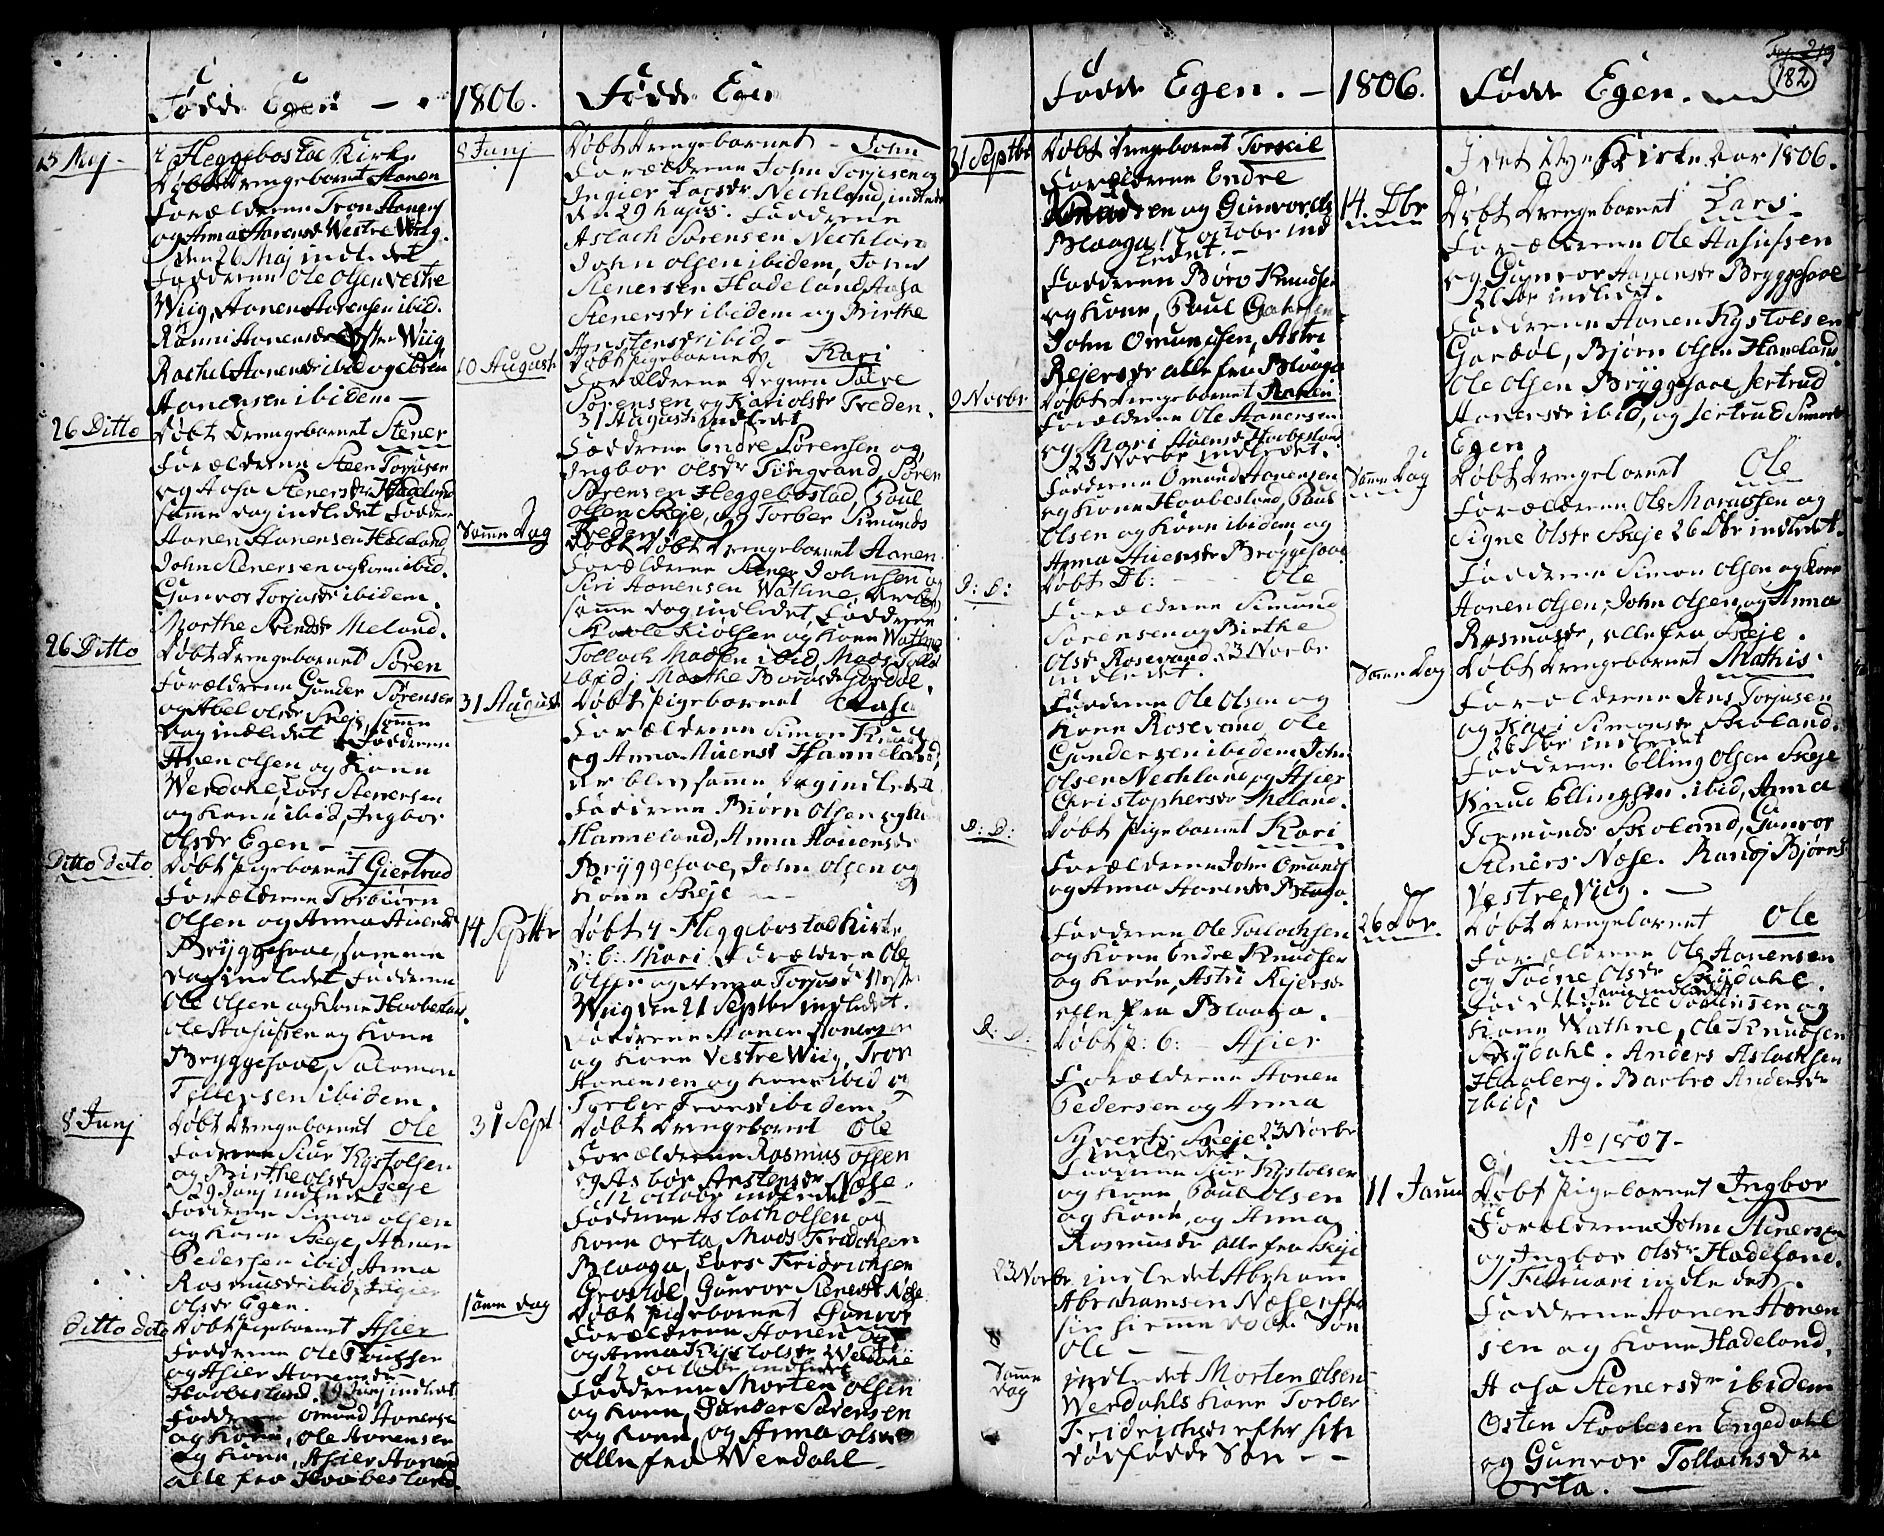 182
Fødde Egen —
15 Maj
i Heggebostad Kirke
Døbt Drengebarnet Aanen
Forældrene Tron Aanens
og Anna Aanensdr Westre Wiig
den 26 Maj indledet
Fadderne Ole Olsen Vestre
Wiig, Aanen Aanensen ibid.
Ranni Aanensdr Øster Wiig
Rachel Aanensdr ibid og Søren
Aanensen ibidem —
26 Ditto
Døbt Drengebarnet Stener
Forældrene Steen Torjusen
og Aasa Stenersdr Hadeland
samme dag indledet Fadder
Aanen Aanensen Hadeland
John Stenersen og Kone ibid.
Gunvor Torjusdr ibidem.
Marthe Svendsdr Meland.
26 Ditto
Døbt Drengebarnet Søren
Forældrene Gunder Sørensen
og Abel Olsdr Skeje, samme
Dag indledet Fadderne
Anen Olsen og Kone
Werdahl, Lars Stenersen
og Kone ibid, Ingbor
Olsdr Egen —
Ditto dito
Døbt Pigebarnet Giertrud
Forældrene Torbiörn
Olsen og Anna Auensdr
Bryggesaae, samme
Dag indledet Fadderne
Ole Olsen og Kone Haabesland
Ole Aasulsen og Kone
Bryggesaae, Salomon
Tellefsen ibidem.
8 Junj
Døbt Drengebarnet Ole
Fadderne Siur Kystolsen
og Birthe Olsdr Skeje
29 Junj indledet
Fadderne Simon Olsen
og Kone Skeje, Aanen
Pedersen ibid, Anna
Rasmusdr ibid, Asgier
Olsdr Egen.
ditto dito
Døbt Pigebarnet Asier
Fadderne Ole Poulsen
og Asier Aanensdr
Haabesland, 29 Junj indledt
Fadderne Omund Aanense
og Kone, Ole Aanensen
og Kone, Asier Aanens
alle fra Haabesland
1806.
Fødde Egen
8 Junj
Døbt Drengebarnet — John
Forældrene John Torjusen og
Ingier Larsdr Nechland, indledet
den 29 hujus. Fadderne
Aslach Sørensen Nechland
John Olsen ibidem, Tomas
Stenersen Hadeland Aasa
Stenersdr ibidem og Birthe
Arnstensdr ibid —
10 August
Døbt Pigebarnet Kari
Forældrene Degnen Salve
Sørensen og Kari Olsdr Treden.
31 August indledet
Fadderne Endre Sørensen og
Ingbor Olsdr Tingvand, Søren
Sørensen Heggebostad, Paul
Olsen Skeje, og Torber Simunds
Treden.
Samme Dag
Døbt Drengebarnet Aanen
Forældrene Stener Johnsen og
Siri Aanensen Wathne, der blev
samme dag indledet, Fadderne
Staale Kiölsen og Kone Wathne
Tollach Madsen ibid, Mads Tollo
ibid, Marthe Boresdr Gardøl.
31 August
Døbt Pigebarnet Aasa
Forældrene Simon Knuds
og Anna Auensd Hanneland,
der blev samme Dag indledet
Fadderne Biörn Olsen og K
Hanneland, Anna Aanensdr
Bryggesaae, John Olsen og
Kone Skeje —
14 Septbr
Døbt i Heggebostad Kirke
P: b: Mari Forældrene Ole
Olsen og Anna Torjusd Vestre
Wiig den 21 Septbr indledet.
Fadderne Aanen Aanensen
og Kone Vestre Wiig, Tron
Aanensen og Kone ibid og
Torber Tronsd ibidem.
31 Sept
Døbt Drengebarnet Ole
Forældrene Rasmus Olsen
og Asbør Arstensdr Nøse.
12 October indledet
Fadderne Aslach Olsen og
Kone Orta, Mads Fridrichsen
Blaaga, Lars Fridrichsen
Grosdøl, Gunvor Stenersdr Nøse
samme Dag
Døbt Pigebarnet Gunvor
Forældrene Aanen
og Anna Kystolsdr Werdahl
12 October indledet
Fadderne Morten Olsen
og Kone, Gunder Sørensen
og Kone og Anna Olsdr
alle fra Werdahl —
Fødde Egen. —
31 Septbr
Døbt Drengebarnet Torkeil
Forældrene Endre
Knudsen og Gunvor
Blaaga 12 Octobr ind
ledet. —
Fadderne Børo Knudsen
og Kone, Paul
John Omundsen, Astri
Rejersdr alle fra Blaaga
9 Novbr
Døbt Drengebarnet
Forældrene Ole Aanersen
og Mari Auensd Haabesland
23 Novbr indledet.
Fadderne Omund Aanensen
og Kone Haabesland, Paul
Olsen og Kone ibidem, og
Anna Auensdr Bryggesaae
D: D:
Døbt Db: — Ole
Forældrene Simund
Sørensen og Birthe
Olsdr Rosevand 23 Novbr
indledet.
Fadderne Ole Olsen og
Kone Rosevand, Ole
Gundersen ibidem, John
Olsen Nechland og Asier
Christophersdr Meland.
D: D:
Døbt Pigebarnet Kari
Forældrene John Omunds
og Anna Aanensdr Blaaga.
Fadderne Ole Tollachsen
og Kone Endre Knudsen
og Kone, Astri Rejersdr
alle fra Blaaga.
D: D:
Døbt P: b: — Asier
Forældrene Aanen
Pedersen og Anna
Syvertsd Skeje 23 Novbr
indledet.
Fadderne Siur Kystolsen
og Kone, Paul Olsen
og Kone, og Anna
Rasmusdr alle fra Skeje
23 Novbr indledet Abraham
Abrahamsen Nøse efter
sin hiemmedøbte Søn
Ole —
Samme Dag
indledet Morten Olsen
Werdahls Kone Torber
Fridrichsdr efter sin
dødfødde Søn — —
1806.
Fødde Egen.
I det Nye Kirke Aar 1806.
14. Dbr
Døbt Drengebarnet Lars
Forældrene Ole Aasulsen
og Gunvor Aanensdr Bryggesaae
26 Dbr indledet.
Fadderne Aanen Kystolsen
Gardøl, Bjørn Olsen Haneland
Ole Olsen Bryggesaae Jertrud
Aanensdr ibid, og Jertrud Simonsdr
Egen
Samme Dag
Døbt Drengebarnet Ole
Forældrene Ole Marcussen og
Signe Olsdr Skeje 26 Dbr indledet.
Fadderne Simon Olsen og Kone
Aanen Olsen, John Olsen og Anna
Rasmusdr, alle fra Skeje.
Samme Dag
Døbt Drengebarnet Mathis.
Forældrene Jens Torjusen
og Kari Simonsdr Skoland.
26 Dbr indledet
Fadderne Elling Olsen Skeje
Knud Ellingsen ibid, Anna
Tormunds Skoland, Gunvor
Steners Nøse. Randj Bjørns
Vestre Viig. —
26 Dbr.
Døbt Drengebarnet Ole
Forældrene Ole Aanensen
og Tone Olsdr Skeidahl.
Janv: indledet
Fadderne Ole Salvesen og
Kone Wathne, Ole Knudsen
Skeidahl. Anders Aslachsen
Haaberg. Barbro Andersdr
ibid.
Ao 1807 —
11 Januar
Døbt Pigebarnet Ingbor
Forældrene John Stenersen
og Ingbor Olsdr Hadeland.
1 Februari indledet.
Fadderne Aanen Aanen
sen og Kone Hadeland.
Aasa Stenersdr ibidem
Østen Staalesen Engedahl
og Gunvor Tollachsdr
Orta. —